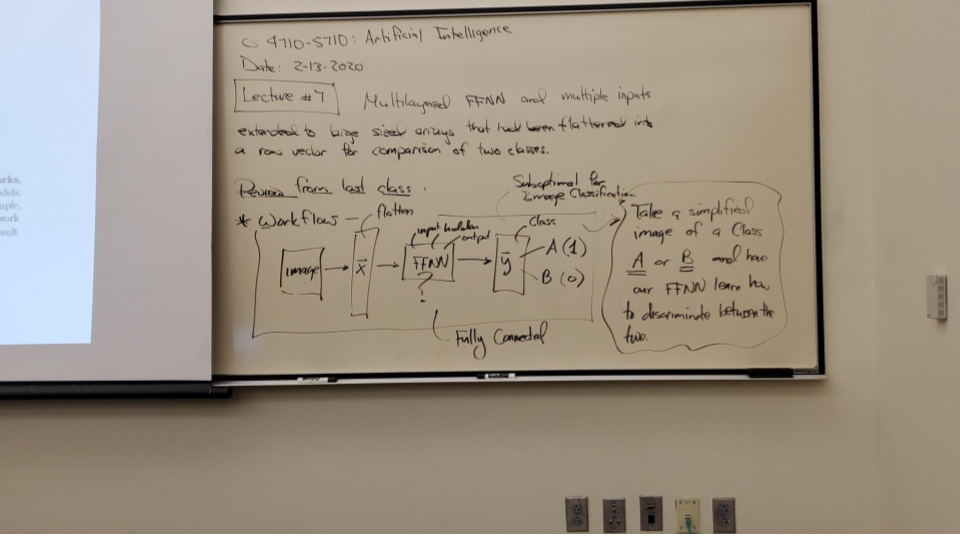 rks,
dels.
ple,
work
sult
CS 4710-5710: Artificial Intelligence
Date: 2-13-2020
Lecture #7 Multilayered FFNN and multiple inputs
extended to large sized arrays that had been flattened into
a row vector for comparison of two classes.
Review from last class.
Suboptimal for
Image Classification
* Workflow —
flatten
input hidden
output
class
image → x → FFNN → y
?
A (1)
B (0)
Fully Connected
Take a simplified
image of a Class
A or B and how
our FFNN learn how
to discriminate between the
two.